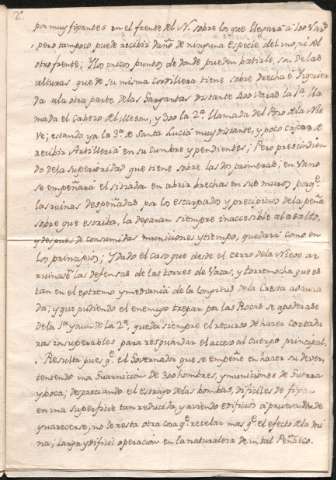 por muy fixantes en el frente del N. sobre lo que llegara a 300 Var.s
pero tampoco puede recibir daño de ninguna especie del mo
otro frente; Y los puntos de donde pueden batirle, son de las
alturas que de su misma cordillera tiene sobre derecha è Izquier
da ala otra parte de las Gargantas distante 400 varas la 1.ª lla
mada el Cabezo del y 300 la 2.ª llamada del Pozo dela Nie
ve; estando ya la 3.ª de Santa Lucia muy distante, y poco capaz de
recibir Artilleria en su cumbre y pendientes; Pero prescindien
do dela superioridad que tiene sobre las dos primeras, en vano
se empeñará el sitiador en abrir brechas en sus muros, porq.e
las ruinas despeñadas por los escarpados y precipicios dela peña
sobre que estriba, la deparan siempre inaccesible al asalto,
y despues de consumidas municiones y tiempo, quedará como en
los principios; Y dado el caso que desde el cerro dela Nieve ar
ruinase las defensas de las torres de que es
tan en el extremo y medianía de la longitud dela Cresta
da; y que pudiendo el enemigo trepar por las Rocas se apoderase
de la 1.ª y aun de la 2.ª, queda siempre el recurso de hacer cortadu
ras insuperables para resguardar el acceso al cuerpo principal.
Resulta pues q.e el Governador que se empeñe en hacer su deber,
teniendo una Guarnicion de 300 hombres, y municiones de Guerra
y boca; despreciando el estrago delas bombas, dificiles de fijar
en una superficie tan reducida, y aviendo edificios à prueva donde
guarecerse, no le resta otra cosa q.e recelar mas q.e el efecto dela Mi
na, larga y dificil operacion en la naturaleza de un tal Peñasco.